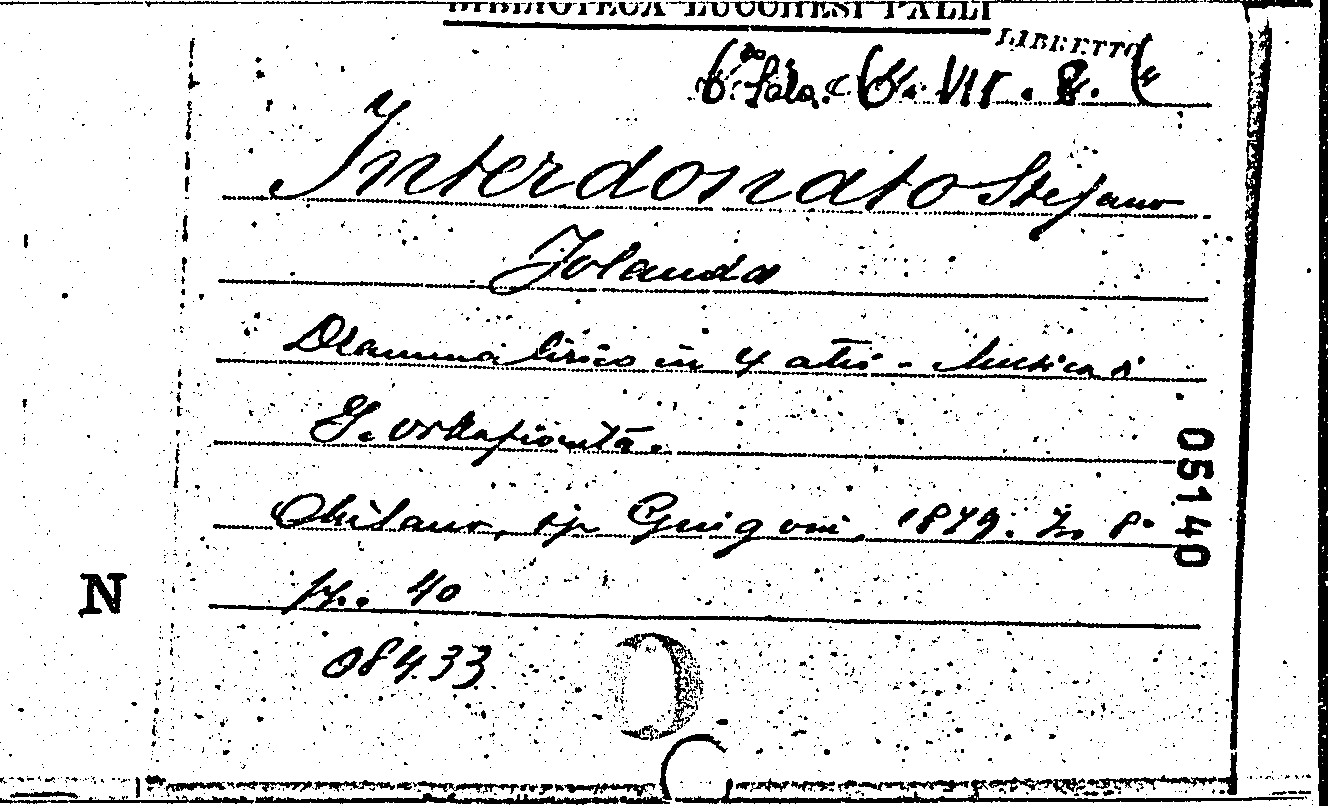 BIBLIOTECA LUCCHESI PALLI
LIBRETTO
6ª Sala. 6. VII. 8. (6
Interdonato Stefano
Jolanda
Dramma lirico in 4 atti - Musica di
G. Villafiorita.
Milano, tip. Guigoni, 1879. In 8°
pp. 40
08433
05140
N